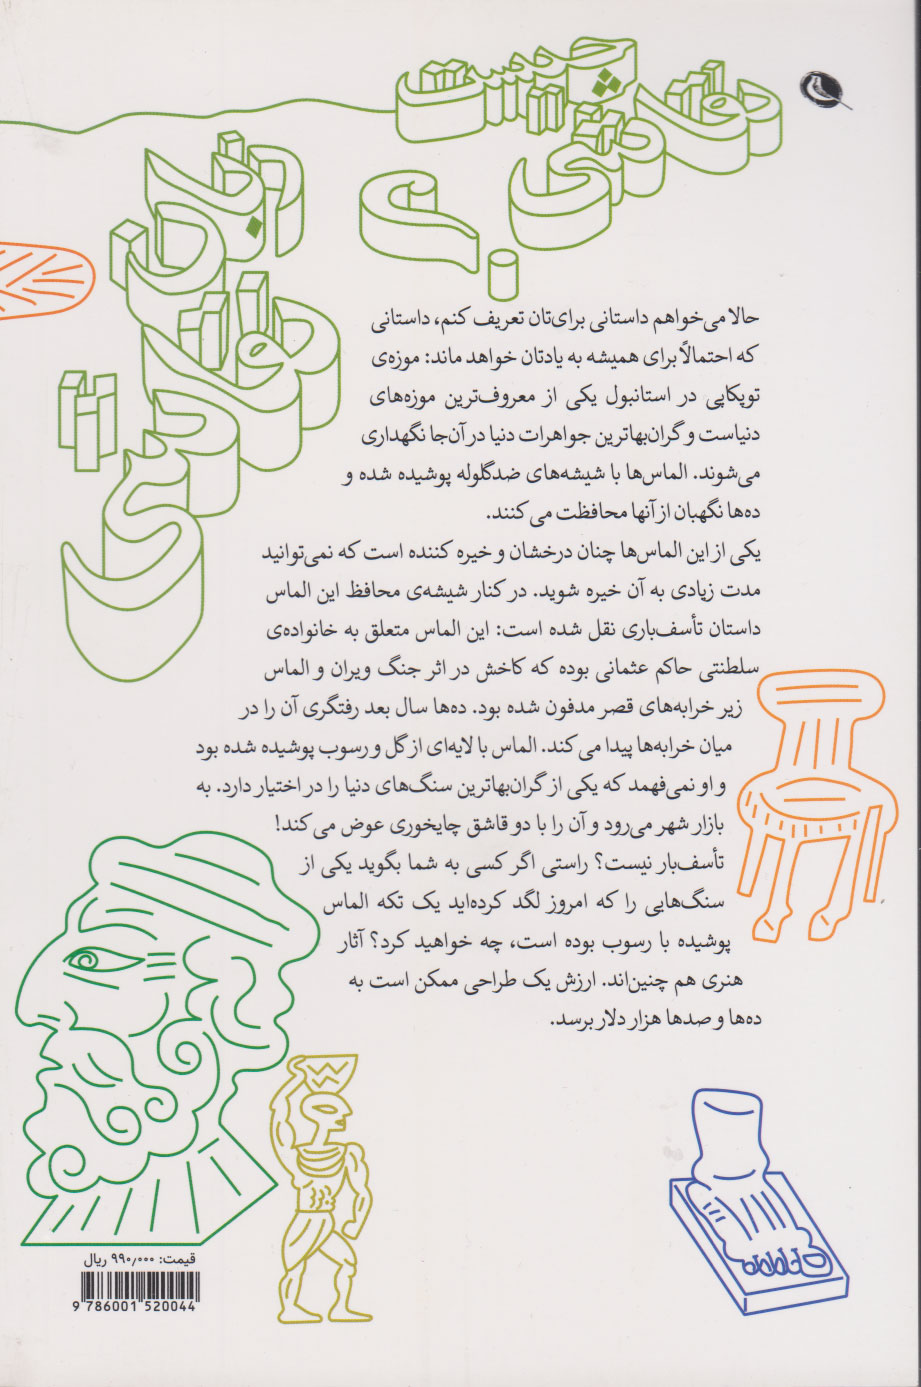 حالا می‌خواهم داستانی برای‌تان تعریف کنم، داستانی
که احتمالاً برای همیشه به یادتان خواهد ماند: موزه‌ی
توپکاپی در استانبول یکی از معروف‌ترین موزه‌های
دنیاست و گران‌بهاترین جواهرات دنیا در آن‌جا نگهداری
می‌شوند. الماس‌ها با شیشه‌های ضدگلوله پوشیده شده و
ده‌ها نگهبان از آنها محافظت می‌کنند.
یکی از این الماس‌ها چنان درخشان و خیره کننده است که نمی‌توانید
مدت زیادی به آن خیره شوید. در کنار شیشه‌ی محافظ این الماس
داستان تأسف‌باری نقل شده است: این الماس متعلق به خانواده‌ی
سلطنتی حاکم عثمانی بوده که کاخش در اثر جنگ ویران و الماس
زیر خرابه‌های قصر مدفون شده بود. ده‌ها سال بعد رفتگری آن را در
میان خرابه‌ها پیدا می‌کند. الماس با لایه‌ای از گل و رسوب پوشیده شده بود
و او نمی‌فهمد که یکی از گران‌بهاترین سنگ‌های دنیا را در اختیار دارد. به
بازار شهر می‌رود و آن را با دو قاشق چایخوری عوض می‌کند!
تأسف‌بار نیست؟ راستی اگر کسی به شما بگوید یکی از
سنگ‌هایی را که امروز لگد کرده‌اید یک تکه الماس
پوشیده با رسوب بوده است، چه خواهید کرد؟ آثار
هنری هم چنین‌اند. ارزش یک طراحی ممکن است به
ده‌ها و صدها هزار دلار برسد.
قیمت: ۹۹۰٫۰۰۰ ریال
9 786001 520044